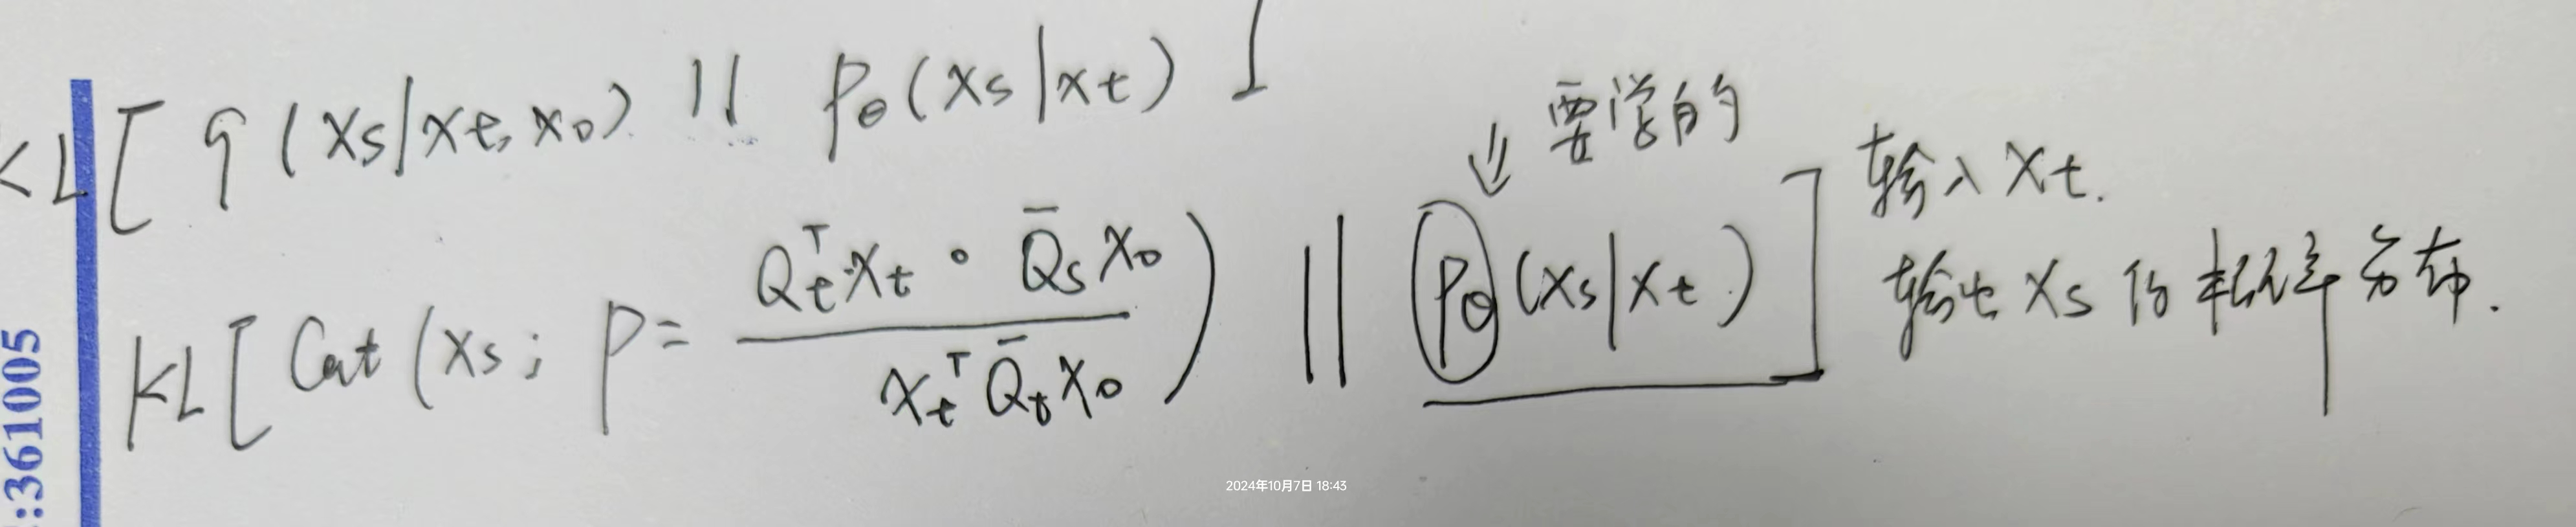 KL[ q(xs|xt, x0) || pθ(xs|xt) ]
⇓ 要学的
KL[ Cat(xs; p= (Qt^T xt ∘ Q̄s x0) / (xt^T Q̄t x0) ) || pθ(xs|xt) ]
输入 xt.
输出 xs 的概率分布.
:361005
2024年10月7日 18:43